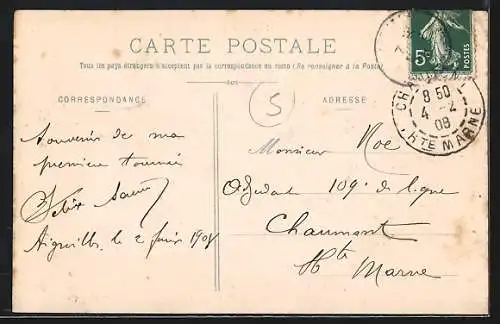 CARTE POSTALE
Tous les pays étrangers n'acceptent pas la correspondance au recto (Se renseigner à la Poste)
CORRESPONDANCE
ADRESSE
5c
POSTES
8 50
4 - 2
08
HTE MARNE
S
Souvenir de ma
première tournée
Aiguilles, le 2
Monsieur Noe
109e de ligne
Chaumont
Hte Marne